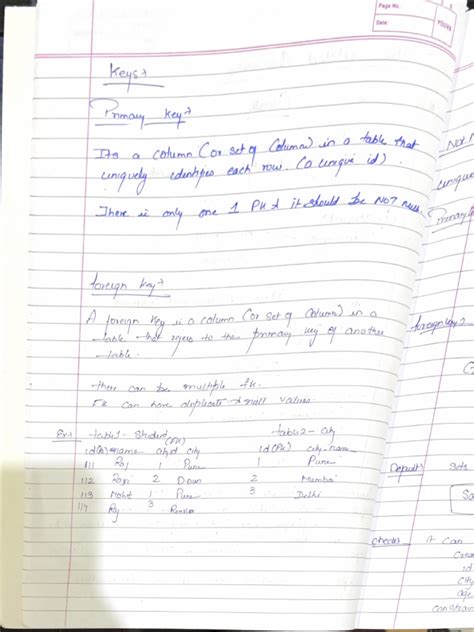 Page No.
Date
YOUVA
Keys→
Primary Key→
Its a column (or set of columns) in a table that
uniquely identifies each row. (a unique id).
There is only one 1 PK & it should be NOT NULL.
foreign key→
A foreign key is a column (or set of columns) in a
table that refers to the primary key of another
table.
there can be multiple fk.
FK can have duplicate & null values.
Ex→ table1- Student table2- city
(FK)
name city id(PK) city-name
111 1 Pune 1 Pune
112 2 2 Mumbai
113 Mohit 1 Pune 3 Delhi
114 3
Not
unique
Primary
foreign key
Default
Sets
checks
it can
id
city
age
constrain